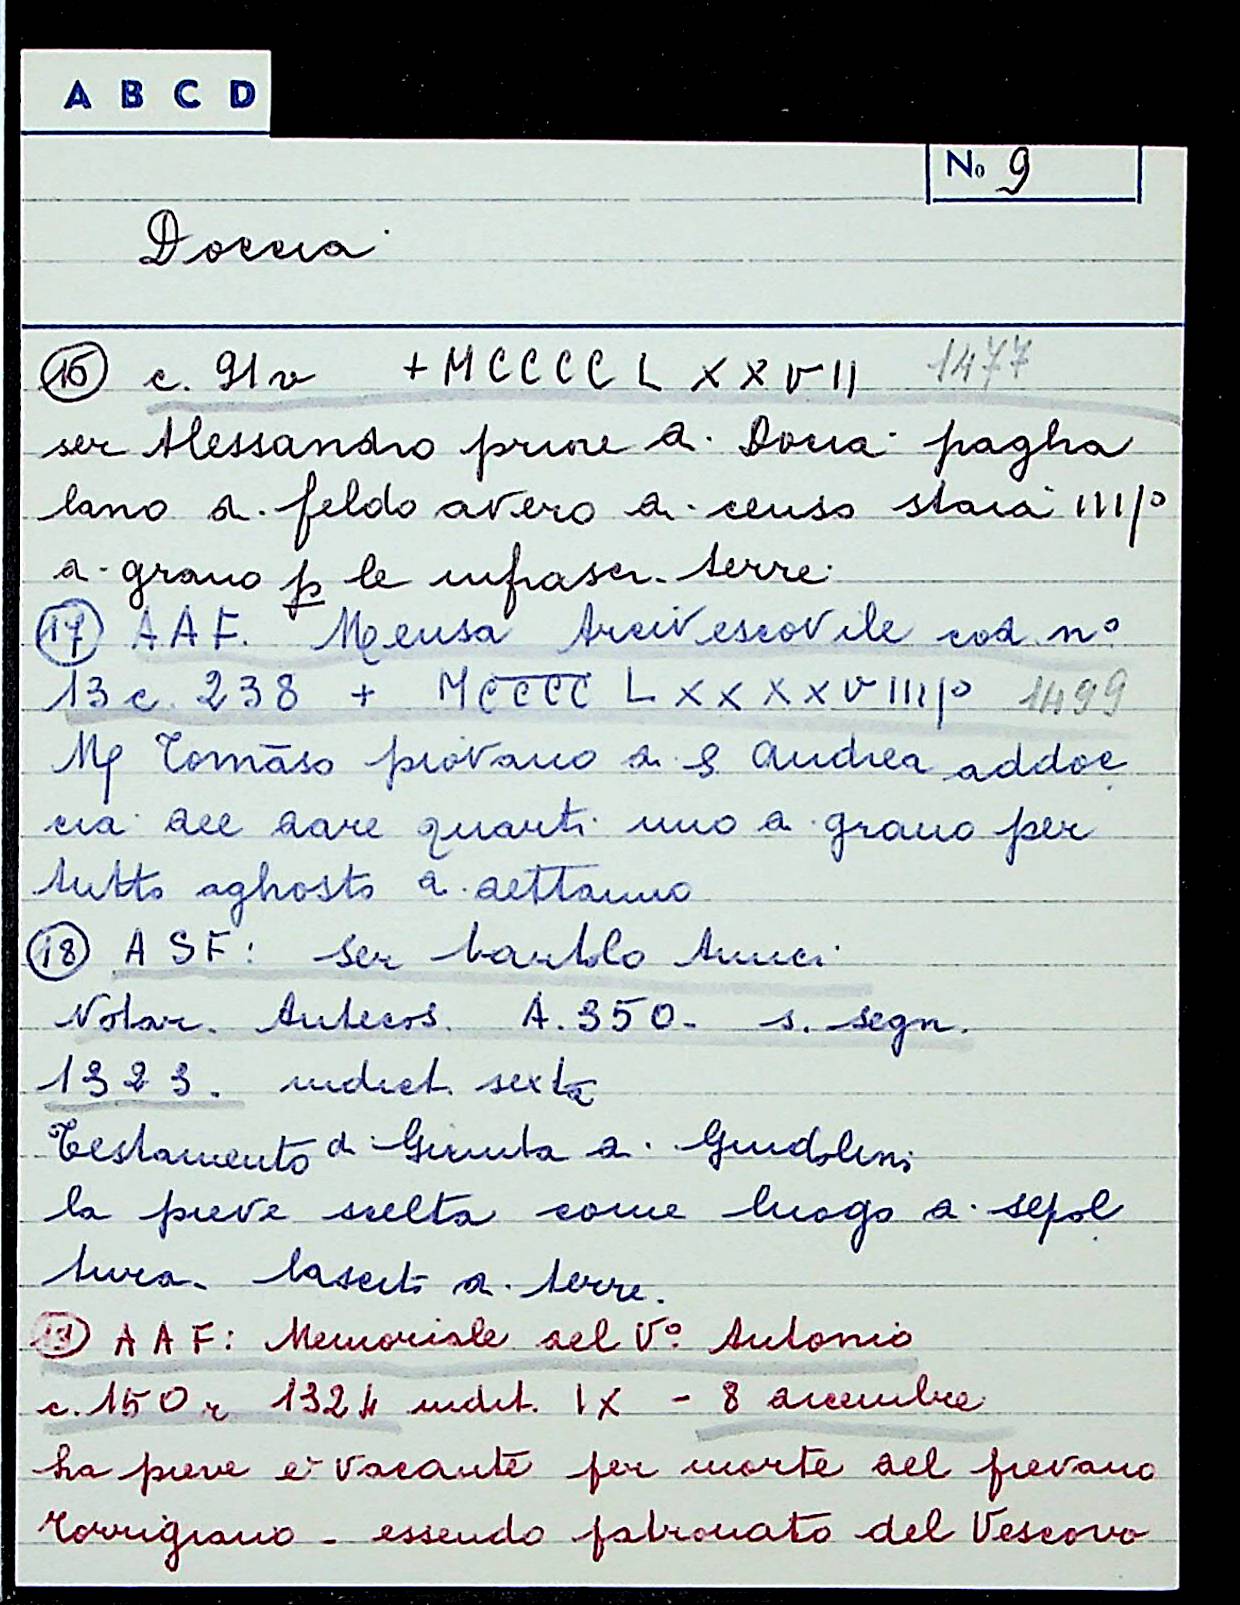 A B C D
No 9
Doccia
16 c. 91v +MCCCCLXXVII 1477
ser Alessandro priore di Doccia pagha
lano di feldo avero di censo staia IIIIº
di grano p le infrascr. terre.
17 AAF. Mensa Arcivescovile cod. nº
13 c. 238 + MCCCCLXXXXVIIIIº 1499
Mʃ Tomāso piovano di S Andrea addoc
cia dee dare quarti uno di grano per
tutto aghosto di dettanno
18 ASF: ser bartolo Amici
Notar. Antecos. A.350. s. segn.
1323. indict. sexta
Testamento di Giunta di Guidolini
la pieve scelta come luogo di sepol
tura. lasciti di terre.
19 AAF: Memoriale del Vº Antonio
c.150r 1324 indit. IX - 8 dicembre
la pieve è vacante per morte del pievano
Torrigiano - essendo patronato del Vescovo